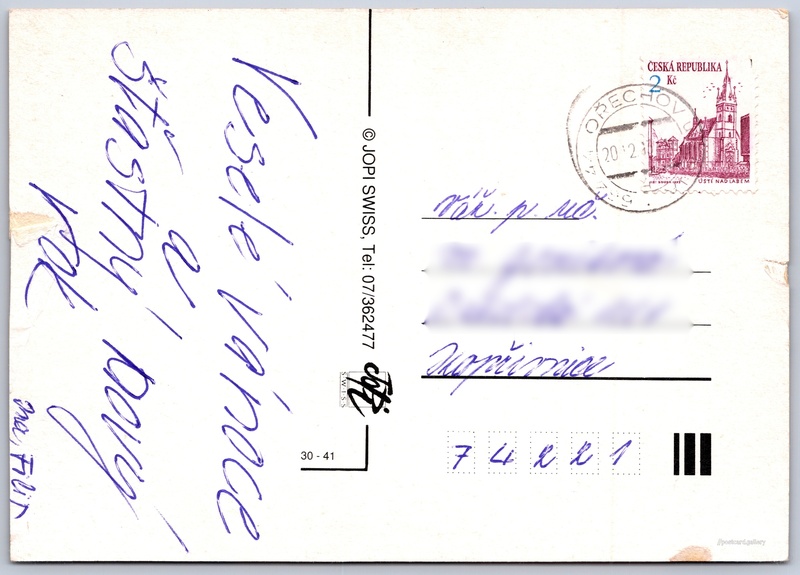 Veselé vánoce
a
štastný nový
rok
Iva, Filip
© JOPI SWISS, Tel: 07/362477
Jopi
SWISS
30 - 41
ČESKÁ REPUBLIKA
2 Kč
ÚSTÍ NAD LABEM
OŘECHOV
20.12
Váž. p. na.
Kopřivnice
74221
@postcard.gallery